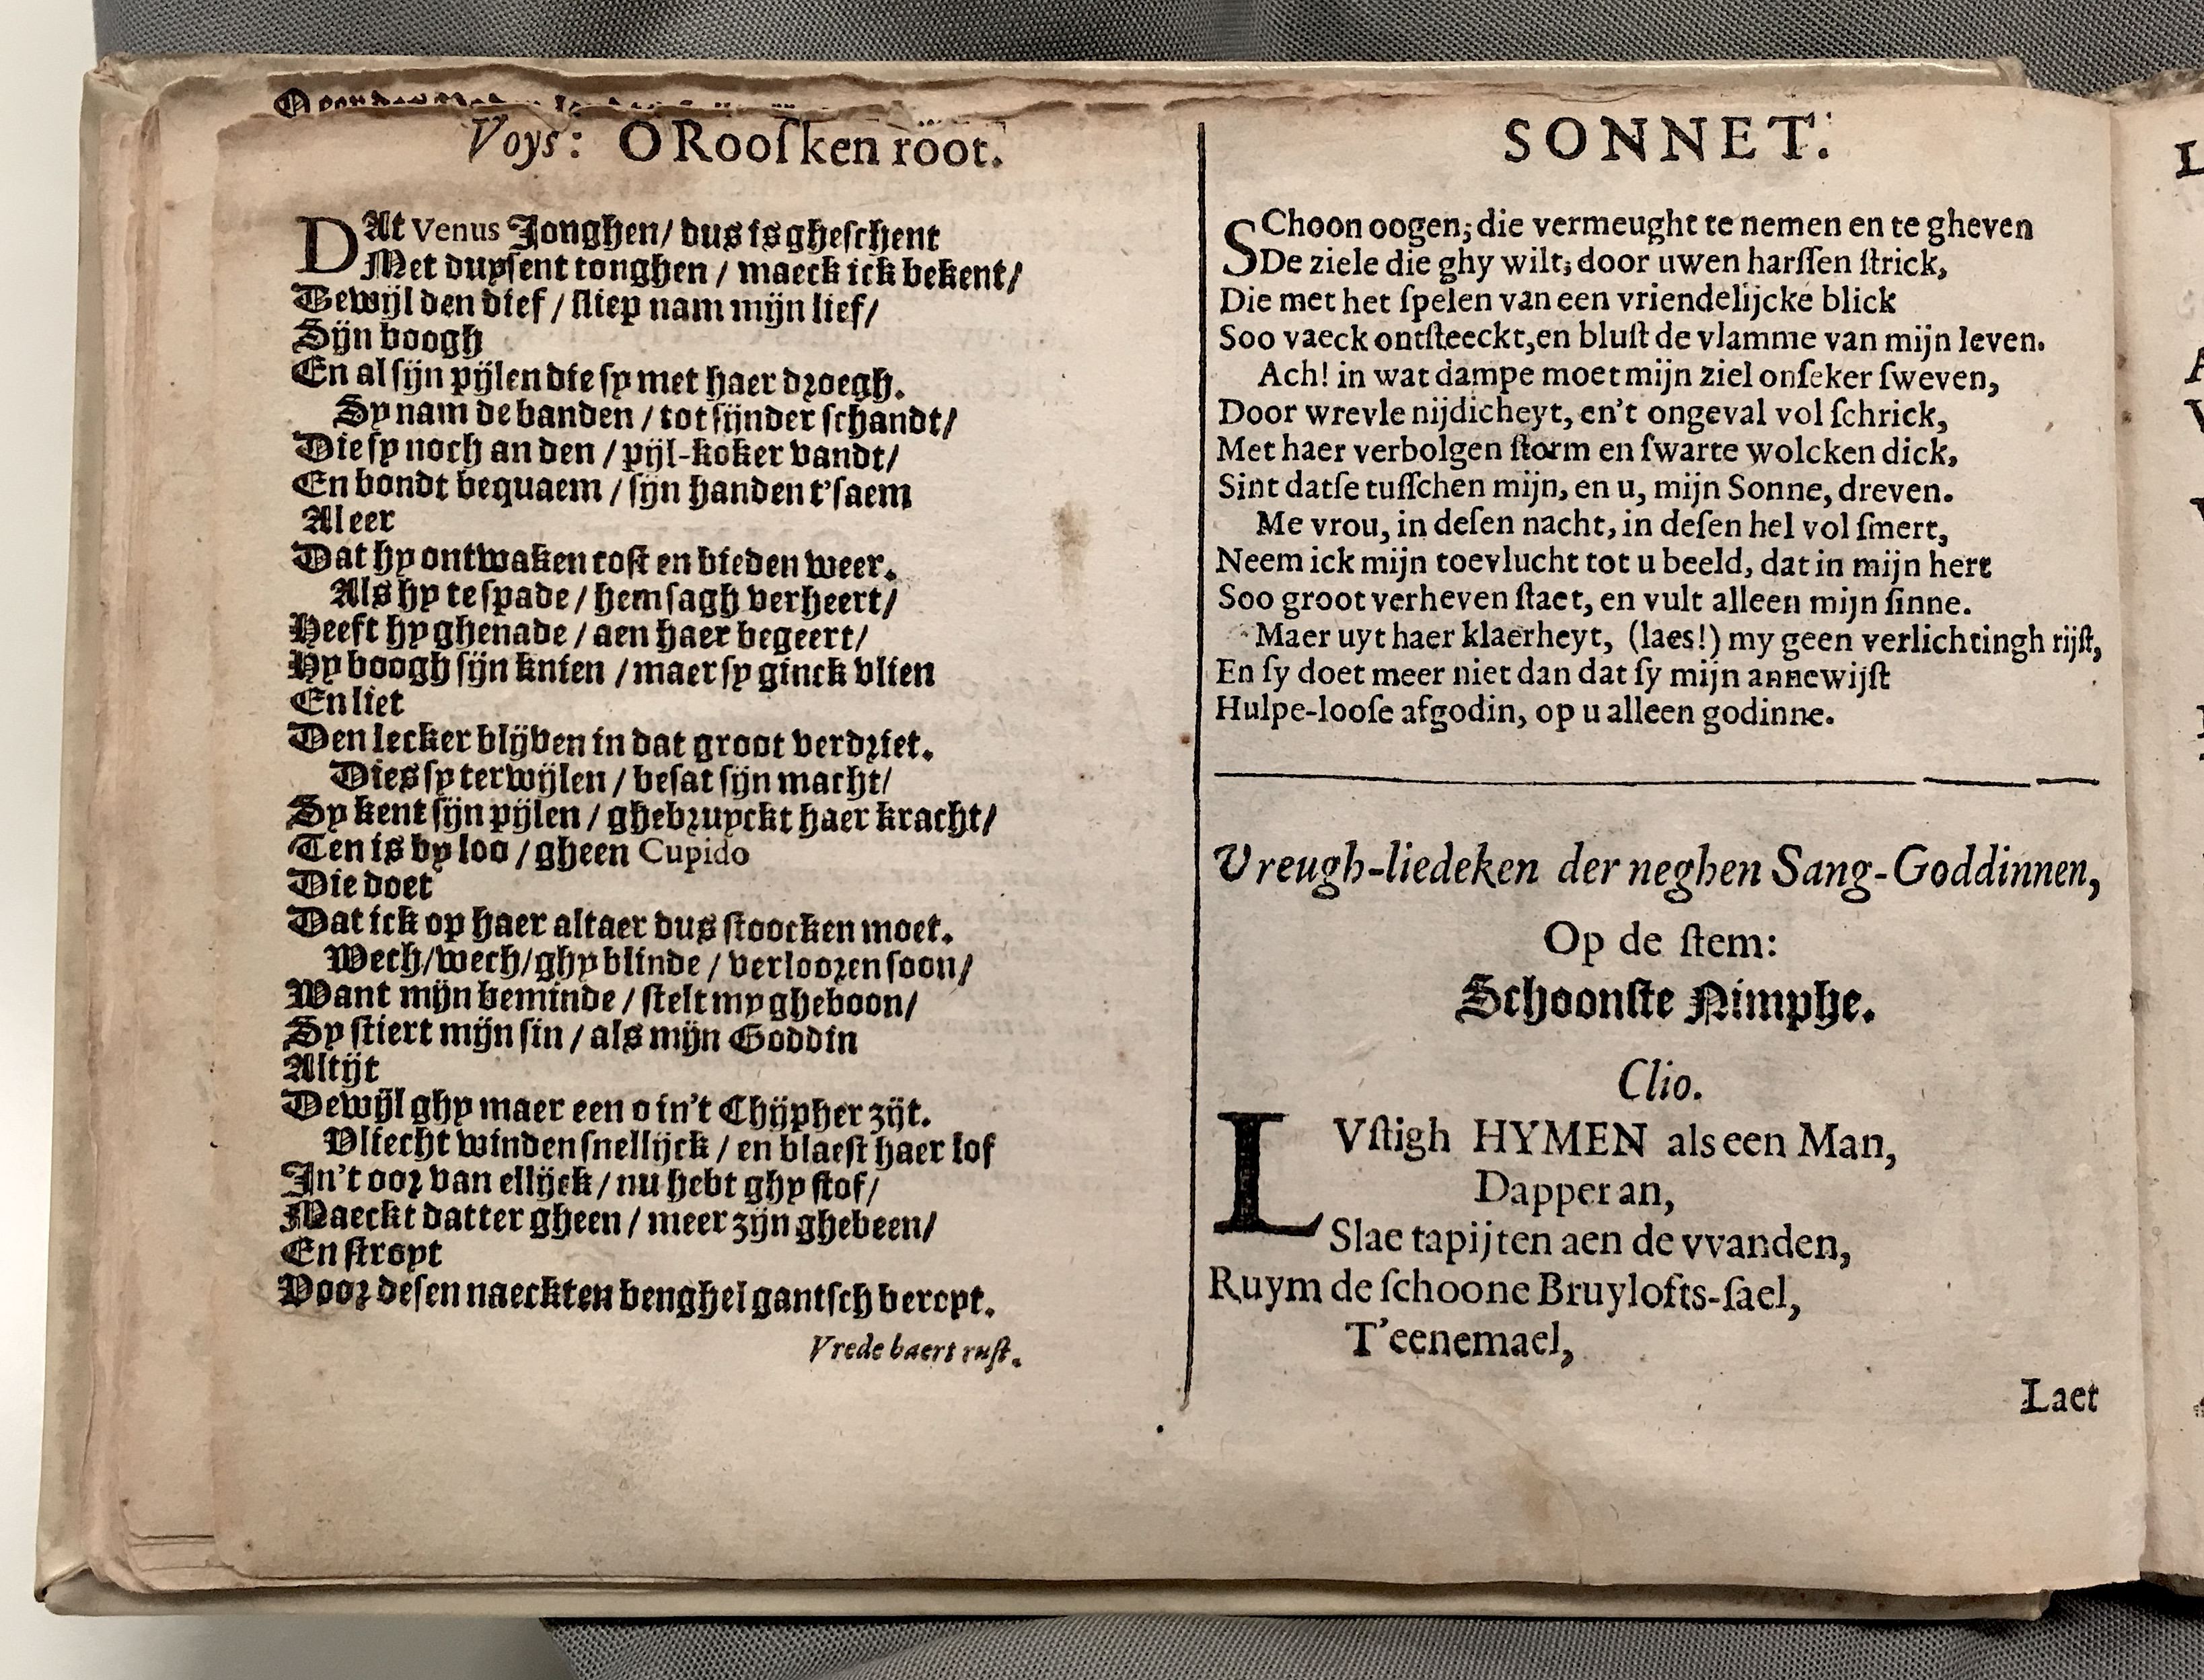 Voys: O Rooſken root.
DAt Venus Jonghen/ dus is gheſchent
Met duyſent tonghen / maeck ick bekent/
Gewijl den dief / ſliep nam mijn lief/
Sijn boogh
En al ſijn pijlen die ſy met haer droegh.
Sy nam de banden / tot ſijnder ſchandt/
Die ſy noch an den / pijl-koker vandt/
En bondt bequaem / ſijn handen t'ſaem
Al eer
Dat hy ontwaken coſt en bieden weer.
Als hy te ſpade / hem ſagh verheert/
Heeft hy ghenade / aen haer begeert/
Hy boogh ſijn knien / maer ſy ginck vlien
En liet
Den lecker blijven in dat groot verdriet.
Dies ſy terwijlen / beſat ſijn macht/
Sy kent ſijn pijlen / ghebruyckt haer kracht/
Ten is by loo / gheen Cupido
Die doet
Dat ick op haer altaer dus ſtoocken moet.
Wech/wech/ghy blinde / verlooren ſoon/
Want mijn beminde / ſtelt my gheboon/
Sy ſtiert mijn ſin / als mijn Goddin
Altijt
Dewijl ghy maer een o in't Chijpher zijt.
Vliecht winden ſnellijck / en blaeſt haer lof
In't oor van ellijck / nu hebt ghy ſtof/
Maeckt datter gheen / meer zijn ghebeen/
En ſtropt
Voor deſen naeckten benghel gantſch beropt.
Vrede baert ruſt.
SONNET.
SChoon oogen; die vermeught te nemen en te gheven
De ziele die ghy wilt; door uwen harſſen ſtrick,
Die met het ſpelen van een vriendelijcke blick
Soo vaeck ontſteeckt, en bluſt de vlamme van mijn leven.
Ach! in wat dampe moet mijn ziel onſeker ſweven,
Door wrevle nijdicheyt, en't ongeval vol ſchrick,
Met haer verbolgen ſtorm en ſwarte wolcken dick,
Sint datſe tuſſchen mijn, en u, mijn Sonne, dreven.
Me vrou, in deſen nacht, in deſen hel vol ſmert,
Neem ick mijn toevlucht tot u beeld, dat in mijn hert
Soo groot verheven ſtaet, en vult alleen mijn ſinne.
Maer uyt haer klaerheyt, (laes!) my geen verlichtingh rijſt,
En ſy doet meer niet dan dat ſy mijn annewijſt
Hulpe-looſe afgodin, op u alleen godinne.
Vreugh-liedeken der neghen Sang-Goddinnen,
Op de ſtem:
Schoonſte Nimphe.
Clio.
LVſtigh HYMEN als een Man,
Dapper an,
Slae tapijten aen de vvanden,
Ruym de ſchoone Bruylofts-ſael,
T'eenemael,
Laet